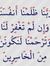 رَبَّنَا ظَلَمْنَا أَنْفُسَنَا
وَإِنْ لَمْ تَغْفِرْ لَنَا
وَتَرْحَمْنَا لَنَكُونَنَّ
مِنَ الْخَاسِرِينَ